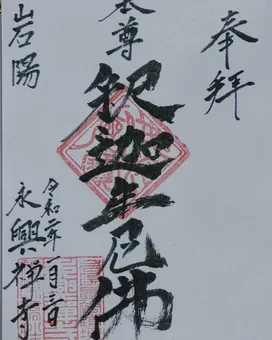 奉拝
本尊
釈迦牟尼佛
岩陽
令和二年一月三日
永興禅寺